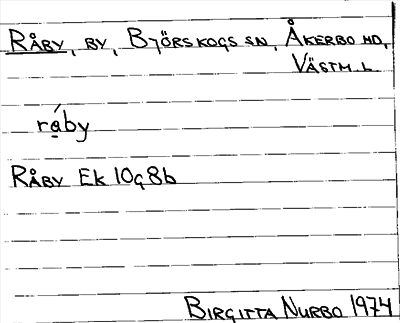 RÅBY, BY, BJÖRSKOGS SN, ÅKERBO HD,
VÄSTM. L
rá̱by
RÅBY EK 10g8b
BIRGITTA NURBO 1974